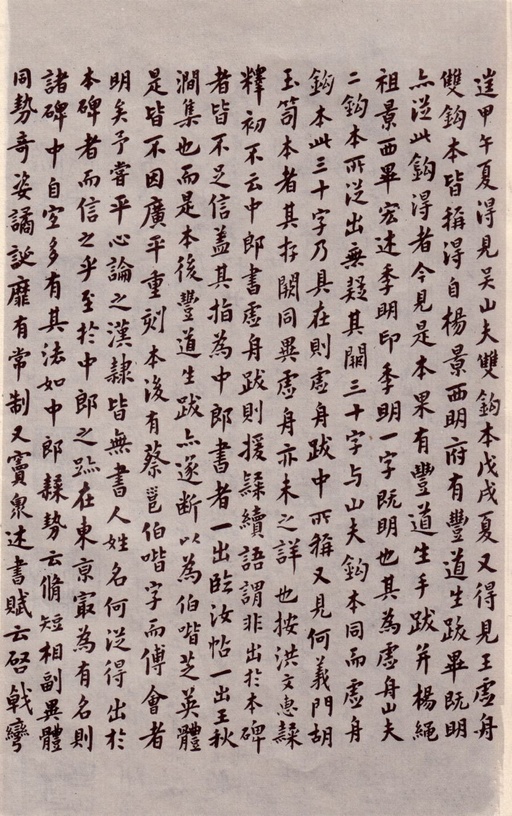 逹甲午夏得見吴山夫雙鈎本戊戌夏又得見王虚舟
雙鈎本皆稱得自楊景西明府有豐道生跋畢既明
亦從此鈎得者今見是本果有豐道生手跋并楊繩
祖景西畢宏述季明印季明一字既明也其為虚舟山夫
二鈎本所從出無疑其闕三十字与山夫鈎本同而虚舟
鈎本此三十字乃具在則虚舟跋中所稱又見何義門胡
玉笥本者其存闕同異虚舟亦未之詳也按洪文惠隸
釋初不云中郎書虚舟跋則援隸續語謂非出於本碑
者皆不足信盖其指為中郎書者一出臨汝帖一出王秋
澗集也而是本後豐道生跋亦遂断以為伯喈芝英體
是皆不因廣平重刻本後有蔡邕伯喈字而傅會者
明矣予嘗平心論之漢隸皆無書人姓名何從得出於
本碑者而信之乎至於中郎之跡在東京㝡為有名則
諸碑中自宜多有其法如中郎隸勢云脩短相副異體
同勢奇姿譎誕靡有常制又竇臮述書賦云啓戟彎